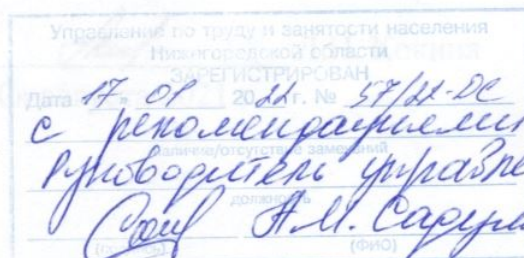 Управление по труду и занятости населения
Нижегородской области
ЗАРЕГИСТРИРОВАН
Дата 17 » 01 2022 г. № 57/22-ДС
с рекомендациями
наличие/отсутствие замечаний
Руководитель управле
должность
А.М. Садул
(подпись) (ФИО)